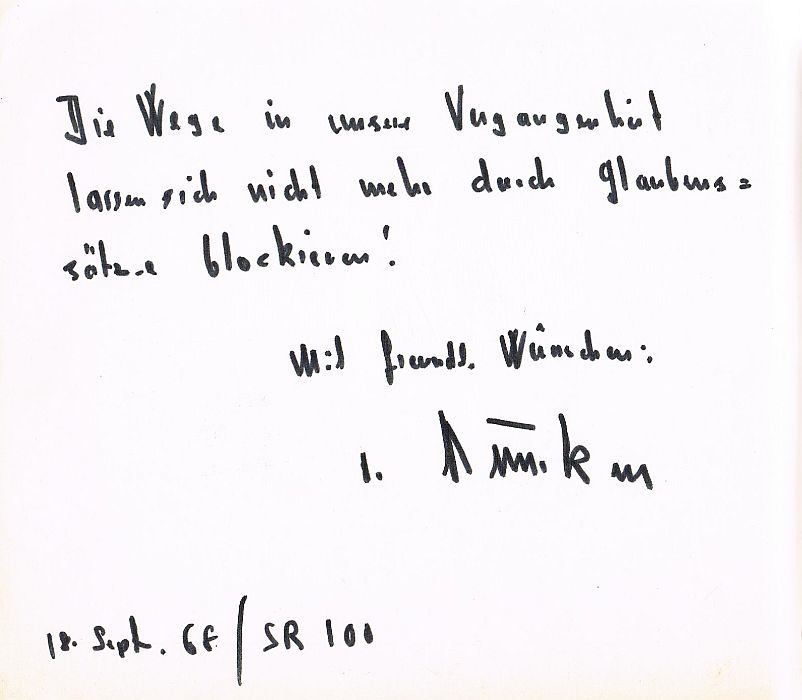 Die Wege in unsere Vergangenheit
lassen sich nicht mehr durch Glaubens=
sätze blockieren!
Mit freundl. Wünschen:
Däniken
18. Sept. / SR 100